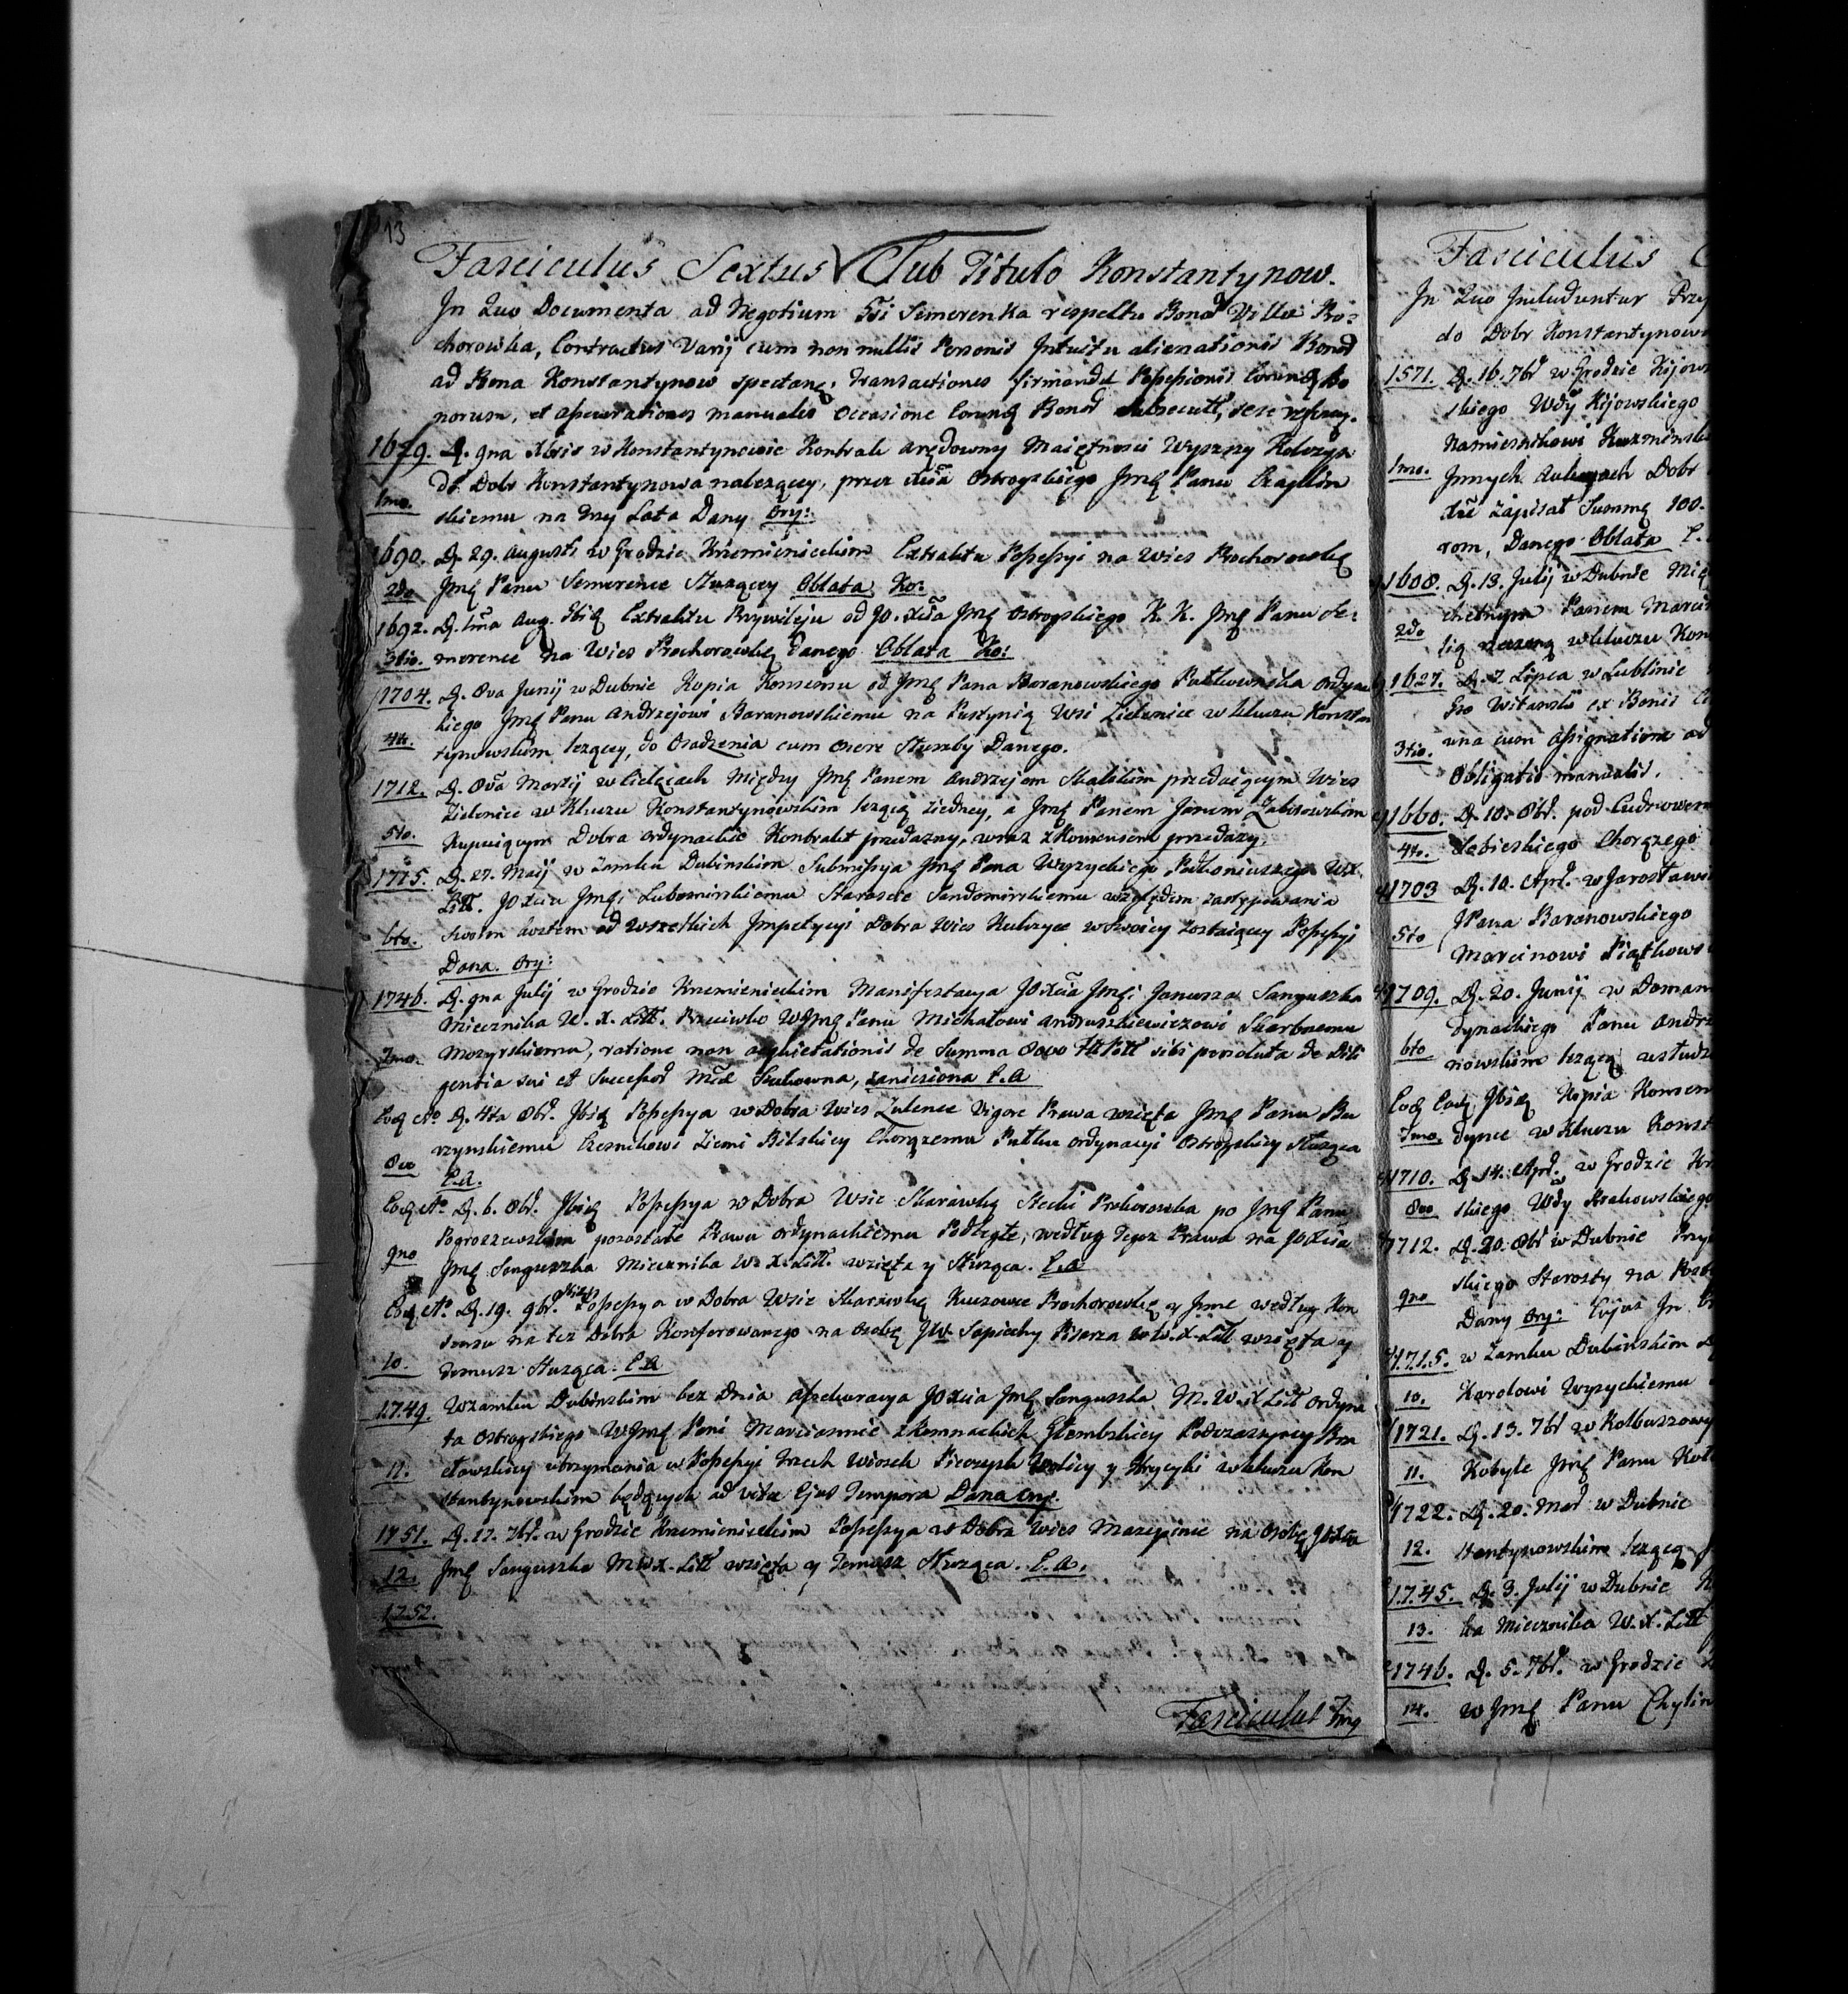 13
Fasciculus Sextus Sub Titulo Konstantynow.
Jn Quo Documenta ad Negotium Semerenka respectu Bonor Villa Ro:
chorowka, Contractus Varij cum non nullis Personis Jntuitu alienationis Bonor
ad Bona Konstantynow spectan: Transactiones Possessionis Bo
norum, et assecurationes manuales Occasione Bonor
1679. D. 9na Xbris w Konstantynowie Kontrakt arędowny Maiętnosci Wyszszy
1mo. do Dobr Konstantynowa nalezący, przez Xcia Ostrogskiego Jmę Panu
skiemu na trzy Lata Dany Ory:
1690. D. 29. Augusti w Grodzie Krzemienieckim Extraktu Possessyi na Wies Prochorowkę
2do Jmę Panu Semerence Słuzący Oblata Ko:
1692. D. 1ma Aug. Ibiq Extraktu Przywileju od JO. Xcia Jmę Ostrogskiego K. K. Jmę Panu Se:
3tio. merence na Wies Prochorowkę Danego Oblata Ko:
1704. D. 8va Junij w Dubnie Kopia Konsensu od Jmę Pana Baranowskiego Pułkownika Ordynac
kiego Jmę Panu Andrzejowi Baranowskiemu na Pustynią Wsi Zielenice w Kluczu Konstan
4to. tynowskim lezący, do Osadzenia cum onere Słuzby Danego.
1712. D. 8va Martij w Cielcach Między Jmę Panem Andrzejem Skalskim przedaiącym Wies
Zielenice w Kluczu Konstantynowskim lezącą ziedney, a Jmę Panem Janem Zabokowskim
5to. Kupuiącym Dobra Ordynackie Kontrakt przedazny, wraz z Konsensem przedazy.
1715. D. 27. Maij w Zamku Dubinskim Submissya Jmę Pana Wyszyckiego Podkoniuszego W.X.
Litt. JO Xciu Jmę: Lubomirskiemu Staroscie Sandomirskiemu względem zastępowania
6to. swoim kosztem od wszelkich Jmpetycyi Dobra Wies Kulczyce w swoiey zostaiącey Possessyi
Dana. Ory:
1746. D. 9na Julij w Grodzie Krzemienieckim Manifestacya JO Xcia Jmę: Janusza Sanguszka
Miecznika W. X. Litt. Przeciwko WJmę Panu Michałowi Andruszkiewiczowi Skarbnemu
7mo. Mozyrskiemu, ratione non acquietationis de Summa 8000 sibi persoluta de Dili
gentia sui et Successor Szuhowna, zaniesiona E.A
Eoq Ao D. 4ta 8br. Jbiq Possessya w Dobra Wies Zulence Vigore Prawa wzięta Jmę Panu Bu
rzynskiemu Czesnikowi Ziemi Bilskiey Chorązemu Pułku Ordynacyi Ostrogskiey Słuząca
8vo E.A.
Eoq Ao D. 6. 8br. Jbiq Possessya w Dobra Wsie Skarawkę Stecki Prohorowka po Jmę Panu
9no Pogroszewskim pozostałe Prawu ordynackiemu Podległe, według Tegoz Prawa na JO Xcia
Jmę Sanguszka Miecznika W. X. Litt. wzięta y Słuząca. E.A
Eoq Ao D. 19. 9br. Possessya w Dobra Wsie Skarawkę Kuzowce Prochorowkę y Jnne według Kon
sensu na tez Dobra Konferowanego na Osobę JW. Sapiechy Pisarza W. X. Litt wzięta y
10. Temusz Słuząca. E.A
1749. W zamku Dubinskim bez Dnia Assekuracya JO Xcia Jmę Sanguszka M. W. X Litt Ordyna
ta Ostrogskiego WJmę Pani Maryannie z Komnackich Głembskiey Podczaszyney Bra
11. cławskiey utrzymania w Possessyi trzech Wiosek Wolicy y Hrycyki w kluczu Kon
stantynowskim będących ad vitae Ejus Tempora Dana Ory.
1751. D. 17. 7br. w Grodzie Krzemienieckim Possessya w Dobra Wies Mazepince na Osobę JO Xcia
12. Jmę Sanguszka M W X. Litt wzięta y Temusz Słuząca. E.A.
1752.
Fasciculus 7mg
Fasciculus
Jn Quo Jncluduntur Przy
do Dobr Konstantynows
1571. D. 16. 7br w Grodzie Kijows
skiego Wdy Kijowskiego
Namiesnikowi Kuzminsk
1mo. Jnnych Dobr
Xze zapisał Summę 100.
rom, Danego Oblata E.
1608. D. 13. Julij w Dubnie Mię
chetnym Panem Marci
2do w kluczu Kon
1627. D. 7. Lipca w Lublinie
ex Bonis
3tio. una cum Assignatione ad
Obligatio manualis.
1660. D. 10. 8br. pod Cudnowem
4to. Sobieskiego Chorązego
1703 D. 10. Apr. w Jarosławiu
5to JPana Baranowskiego
Marcinowi Piątkows
1709. D. 20. Junij w Doman
dynackiego Panu Andrz
6to nowskim lezącą
Eoq Eoq Jbiq Kopia Konsen
7mo. dynce w Kluczu Konst
1710. D. 14. Apr. w Grodzie Kr
8vo skiego Wdy Krakowskiego
1712. D. 20. 8br w Dubnie Przy
skiego Starosty na
9no Dany Ory: Cujus Jn
1715. w Zamku Dubinskim
10. Karolowi Wyszyckiemu
1721. D. 13. 7br w Kolbuszowy
11. Kobyle Jmę Panu
1722. D. 20. Mar w Dubnie
12. stantynowskim lezącą
1745. D. 3. Julij w Dubnie
13. ka Miecznika W. X. Litt
1746. D. 5. 7br. w Grodzie
14. w Jmę Panu Chylin